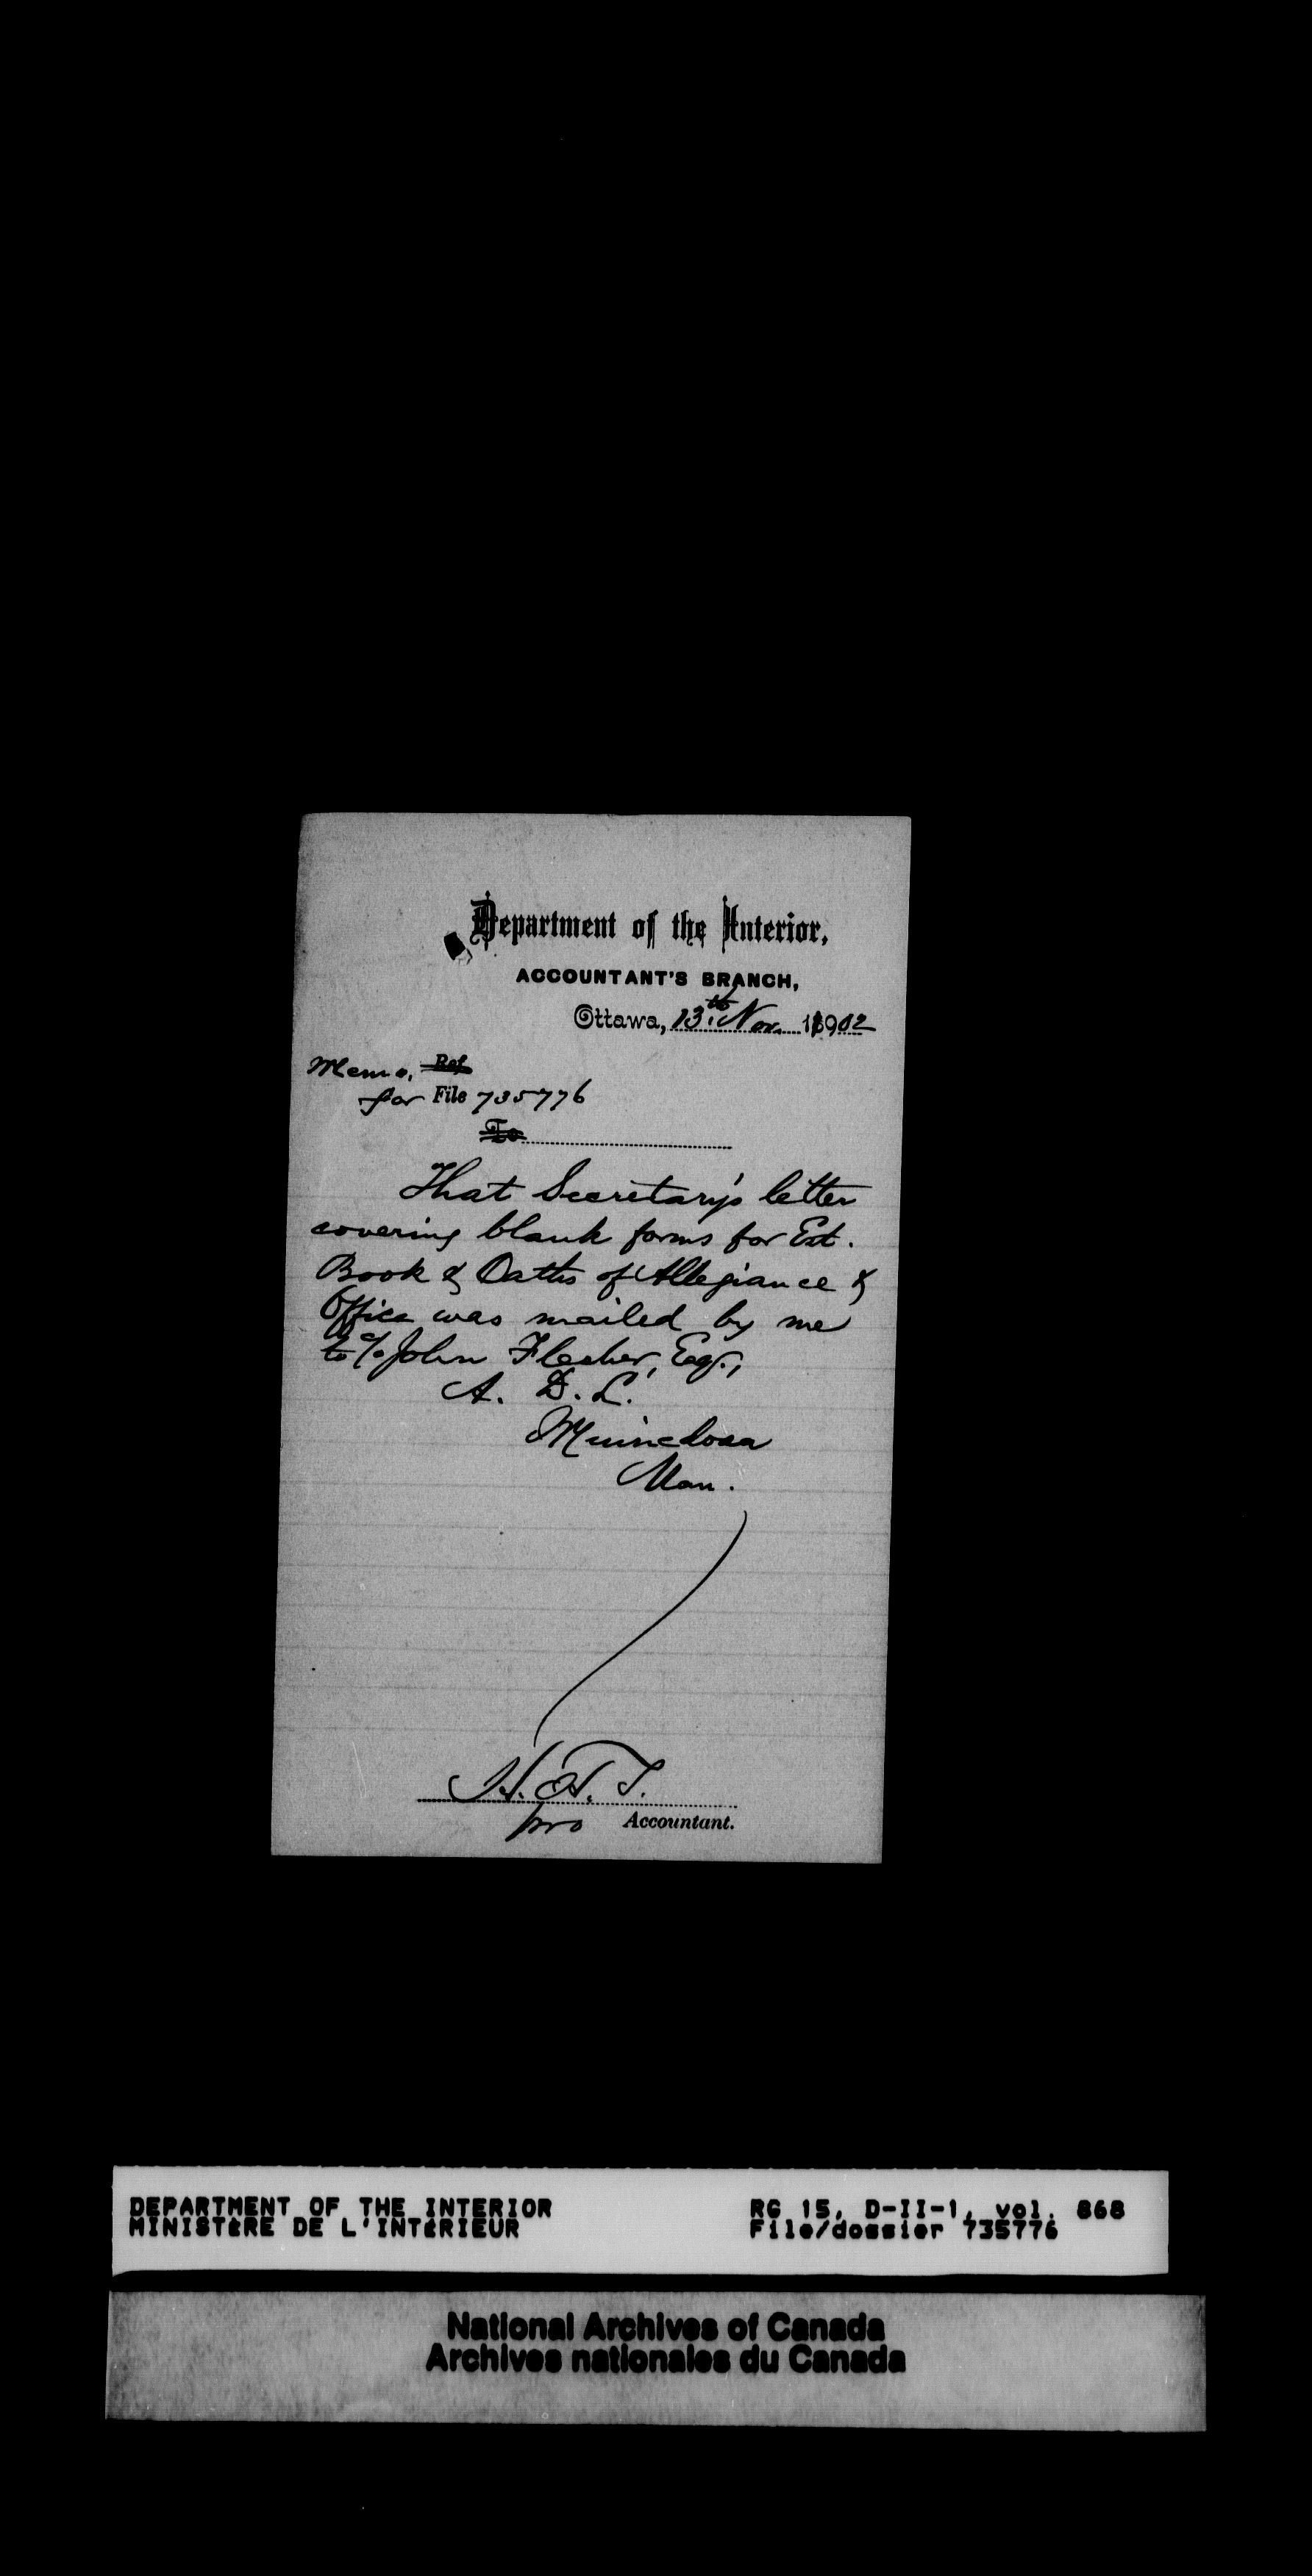 Department of the Interior,
ACCOUNTANT'S BRANCH,
Ottawa, 13th Nov. 1902
Memo. Ref.
for File 735776
To
That Secretary's letter
covering blank forms for Ext.
Book & Oaths of Allegiance &
Office was mailed by me
to c/o John Flesher, Esqr.,
A. D. L.
Minnedosa
Man.
H.
pro Accountant.
DEPARTMENT OF THE INTERIOR
MINISTÈRE DE L'INTÉRIEUR
RG 15, D-II-1, vol. 868
File/dossier 735776
National Archives of Canada
Archives nationales du Canada